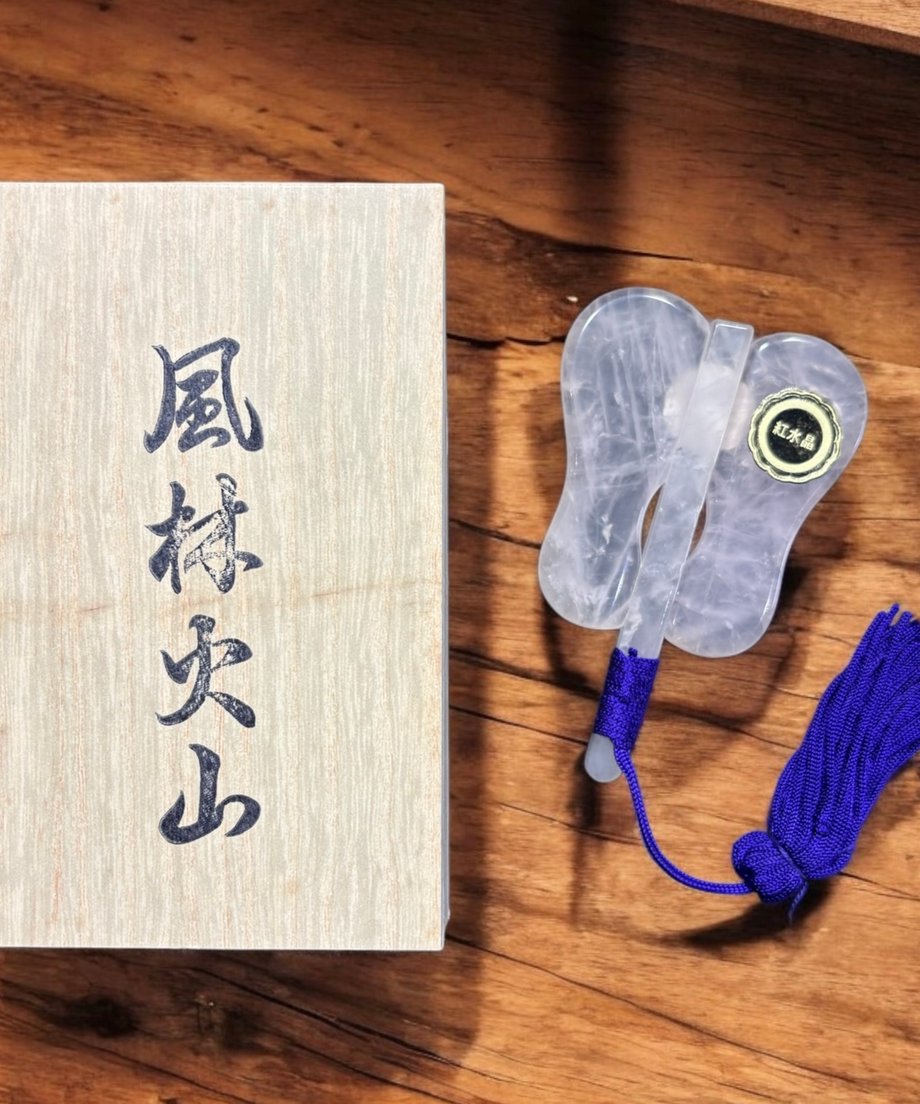 風林火山
紅水晶